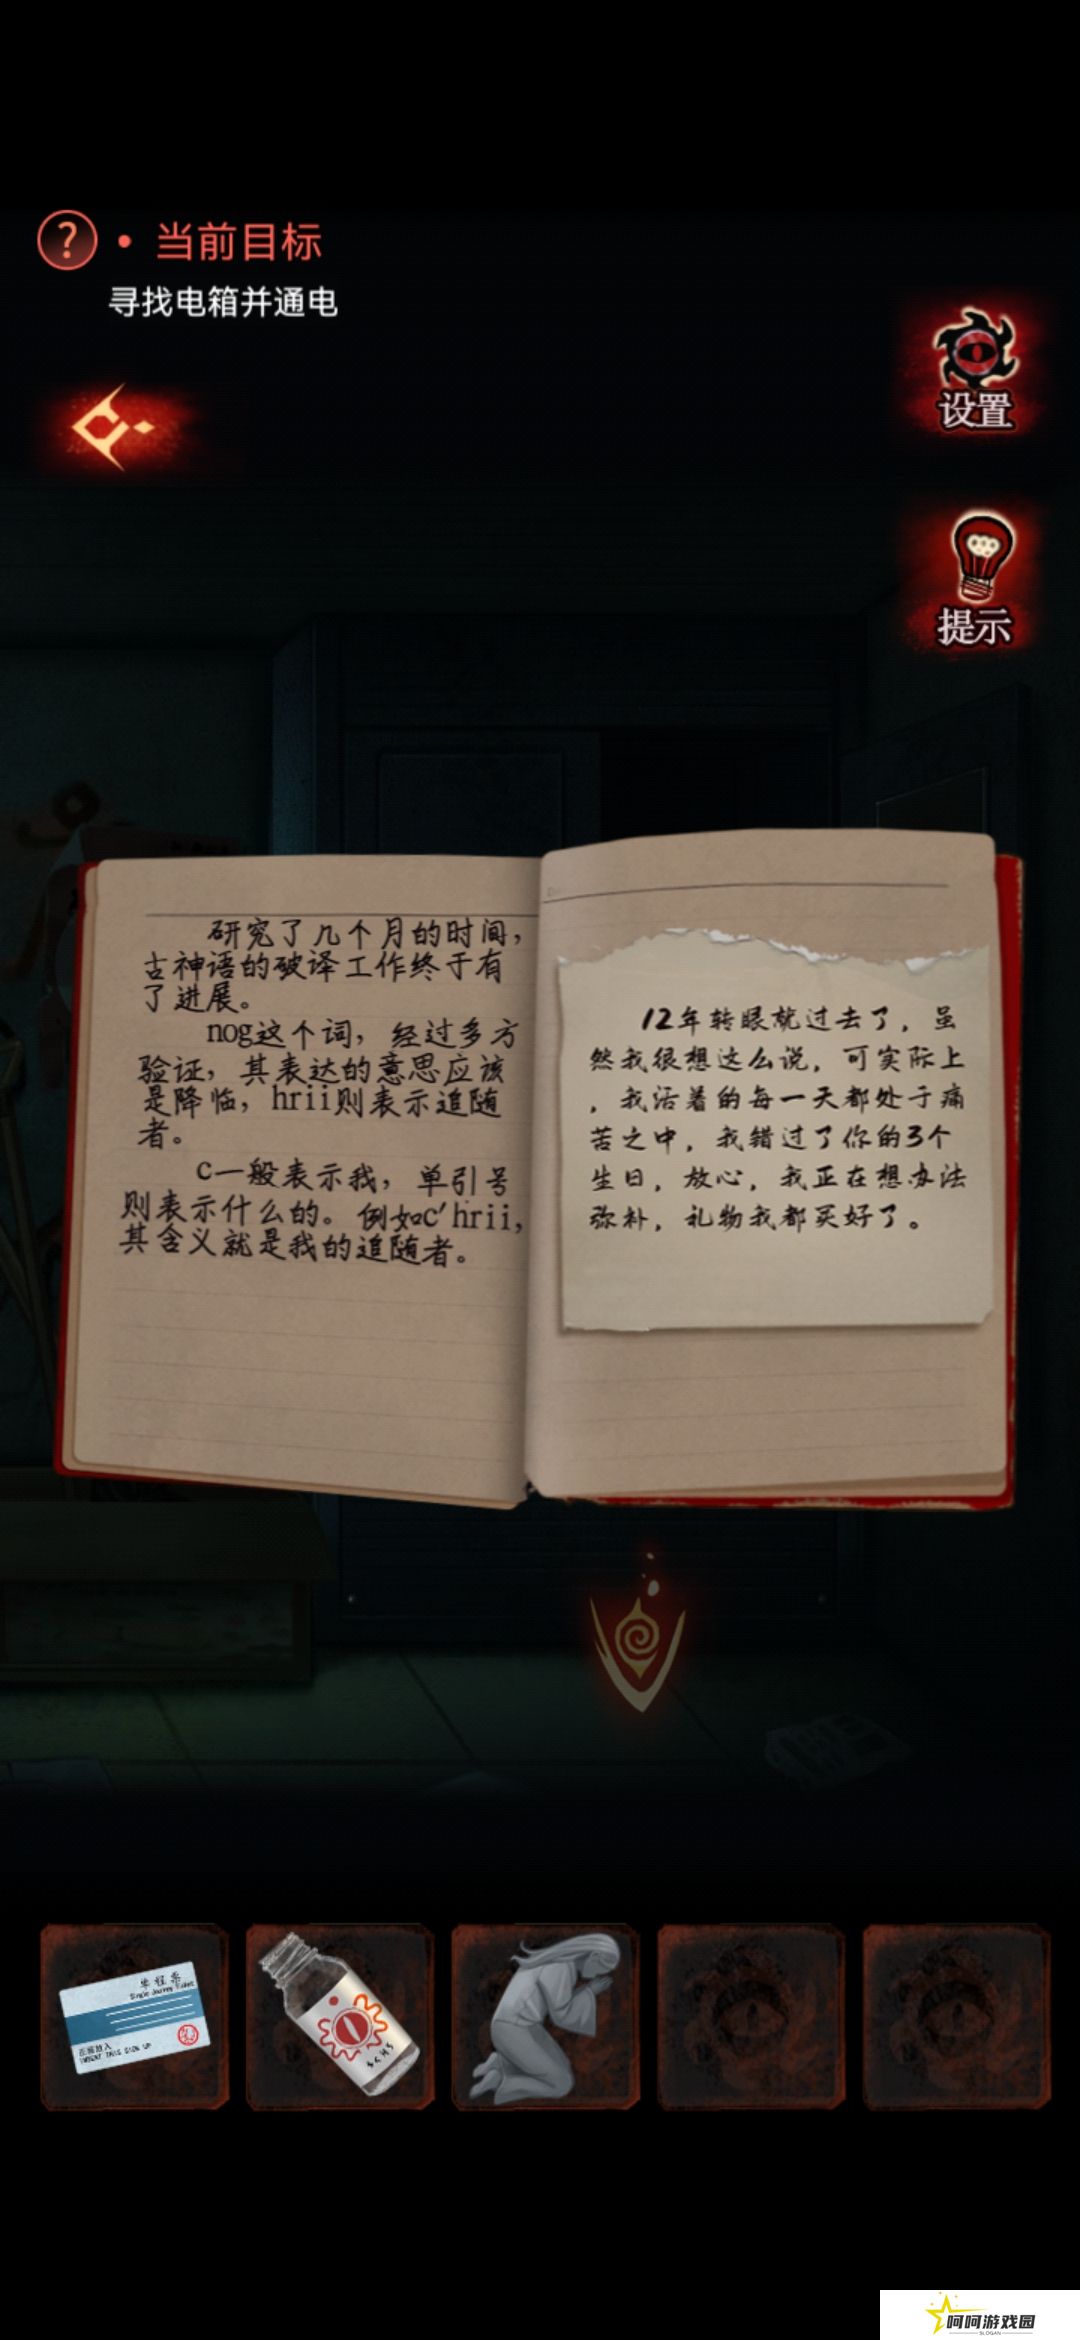 ?
当前目标
寻找电箱并通电
设置
提示
研究了几个月的时间，
古神语的破译工作终于有
了进展。
nog这个词，经过多方
验证，其表达的意思应该
是降临，hrii则表示追随
者。
c一般表示我，单引号
则表示什么的。例如c'hrii，
其含义就是我的追随者。
12年转眼就过去了，虽
然我很想这么说，可实际上
，我活着的每一天都处于痛
苦之中，我错过了你的3个
生日，放心，我正在想办法
弥补，礼物我都买好了。
单程票
Single Journey Ticket
呵呵游戏园
SLOGAN